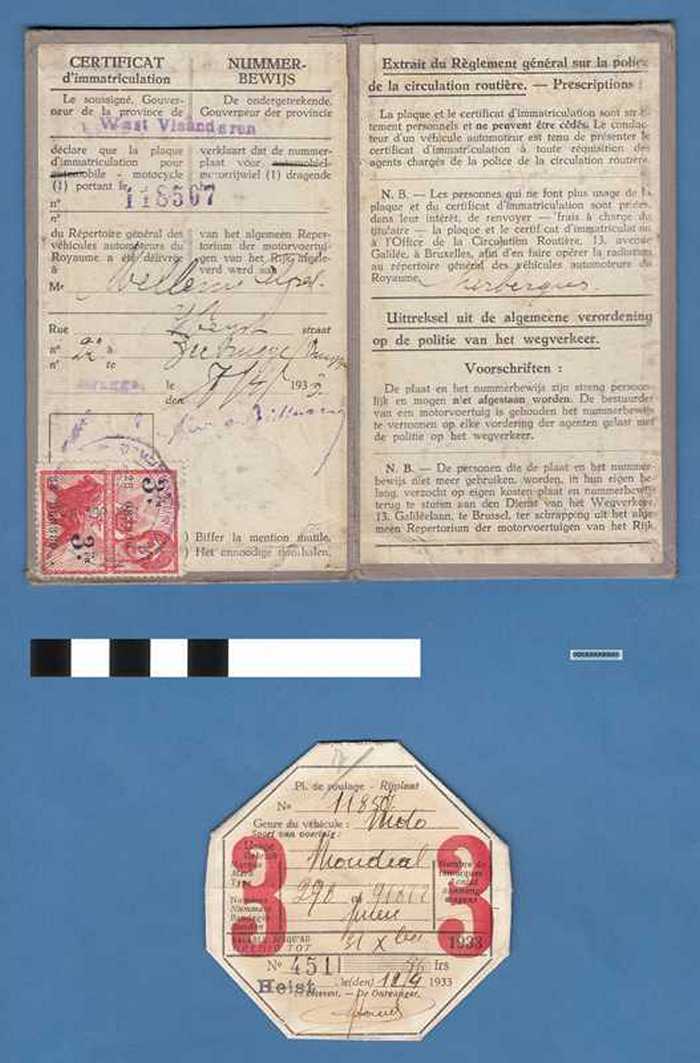 CERTIFICAT
d'immatriculation
Le soussigné, Gouver-
neur de la province de
West Vlaanderen
déclare que la plaque
d'immatriculation pour
automobile - motocycle
(1) portant le
118507
n°
n°
du Répertoire général des
véhicules automoteurs du
Royaume a été délivrée
à
Mr
Rue
n° 22 à
n° te
Brugge, le
den 193
NUMMER-
BEWIJS
De ondergeteekende,
Gouverneur der provincie
verklaart dat de nummer-
plaat voor automobiel-
motorrijwiel (1) dragende
van het algemeen Reper-
torium der motorvoertui-
gen van het Rijk afgele-
verd werd aan
straat
Zeebrugge
) Biffer la mention inutile.
) Het onnoodige doorhalen.
Extrait du Règlement général sur la police
de la circulation routière. — Prescriptions :
La plaque et le certificat d'immatriculation sont stric-
tement personnels et ne peuvent être cédés. Le conduc-
teur d'un véhicule automoteur est tenu de présenter le
certificat d'immatriculation à toute réquisition des
agents chargés de la police de la circulation routière.
N. B. — Les personnes qui ne font plus usage de la
plaque et du certificat d'immatriculation sont priées,
dans leur intérêt, de renvoyer — frais à charge du
titulaire — la plaque et le certificat d'immatriculation
à l'Office de la Circulation Routière, 13, avenue
Galilée, à Bruxelles, afin d'en faire opérer la radiation
au répertoire général des véhicules automoteurs du
Royaume.
Uittreksel uit de algemeene verordening
op de politie van het wegverkeer.
Voorschriften :
De plaat en het nummerbewijs zijn streng persoon-
lijk en mogen niet afgestaan worden. De bestuurder
van een motorvoertuig is gehouden het nummerbewijs
te vertoonen op elke vordering der agenten gelast met
de politie op het wegverkeer.
N. B. — De personen die de plaat en het nummer-
bewijs niet meer gebruiken, worden, in hun eigen be-
lang, verzocht op eigen kosten plaat en nummerbewijs
terug te sturen aan den Dienst van het Wegverkeer,
13, Galileelaan, te Brussel, ter schrapping uit het alge-
meen Repertorium der motorvoertuigen van het Rijk.
Pl. de roulage - Rijplaat
N° 118507
Genre du véhicule : Moto
Soort van voertuig :
Mondial
3 3
1933
N° 451 frs
Heist, le(den) 18/4 1933
Le Receveur, - De Ontvanger,